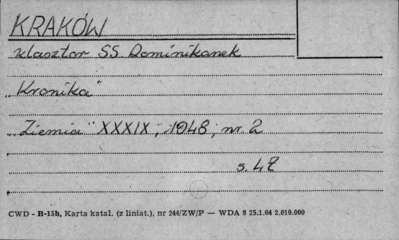 KRAKÓW
klasztor SS. Dominikanek
"Kronika"
"Ziemia" XXXIX, 1948, nr. 2
s. 48
CWD - B-15b, Karta katal. (z liniat.), nr 244/ZW/P — WDA 8 25.1.64 2.010.000